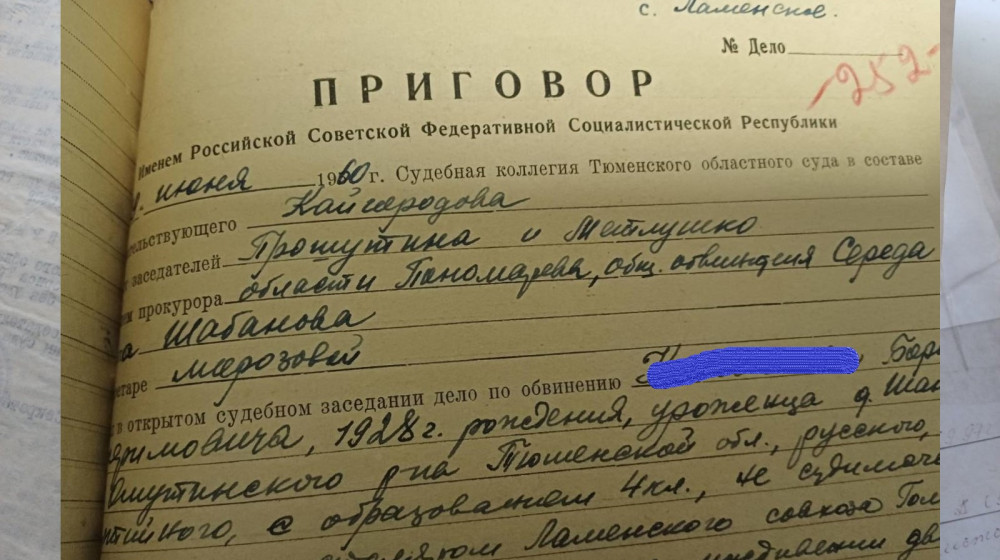 с. Ламенское.
№ Дело
252
ПРИГОВОР
Именем Российской Советской Федеративной Социалистической Республики
июня 1960 г. Судебная коллегия Тюменского областного суда в составе
ельствующего Кайгородова
заседателей Прошутина и Метлушко
прокурора области Пономарева, общ. обвинителя Середа
та Шабанова
етаре Морозовой
в открытом судебном заседании дело по обвинению
1928 г. рождения, уроженца д.
Омутинского р-на Тюменской обл., русского,
с образованием 4 кл., не
Ламенского совхоза